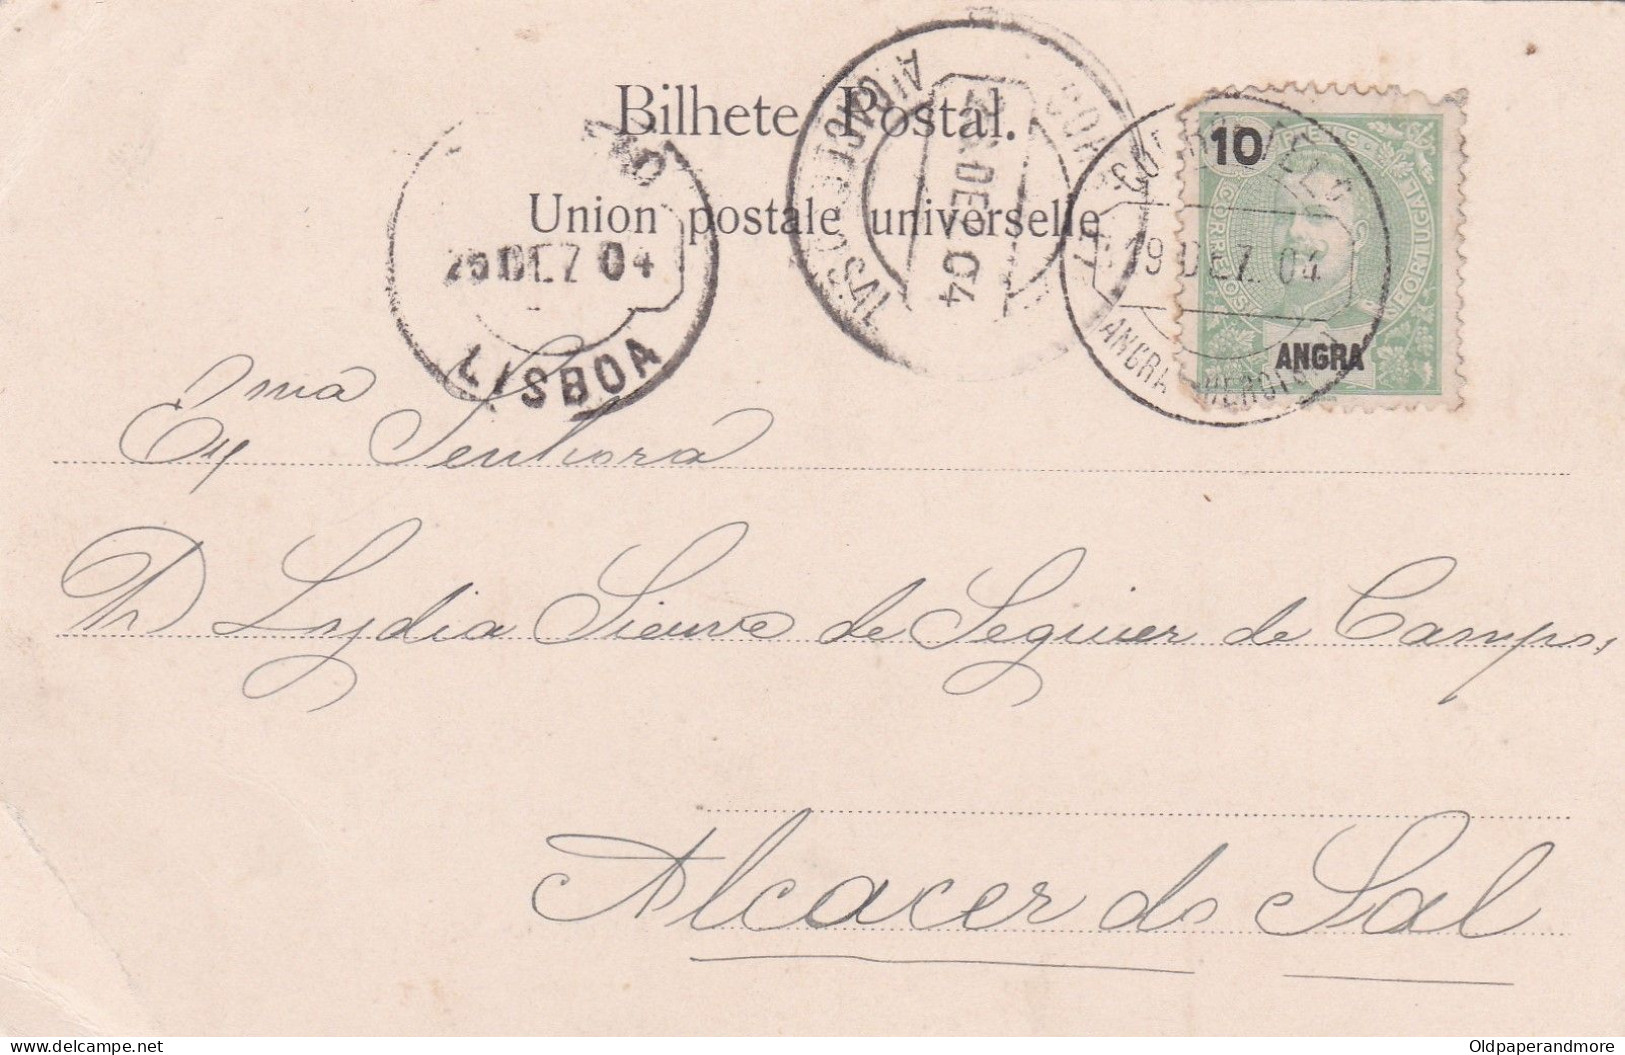 Bilhete Postal.
Union postale universelle
LISBOA
25 DEZ 04
ALCACER DO SAL
DEZ 04
19 DEZ 04
ANGRA HEROIS
10 REIS
CORREIOS
PORTUGAL
ANGRA
Exma Senhora
D Lydia Sieuve de Seguier de Campos,
Alcacer do Sal
Oldpaperandmore
delcampe.net